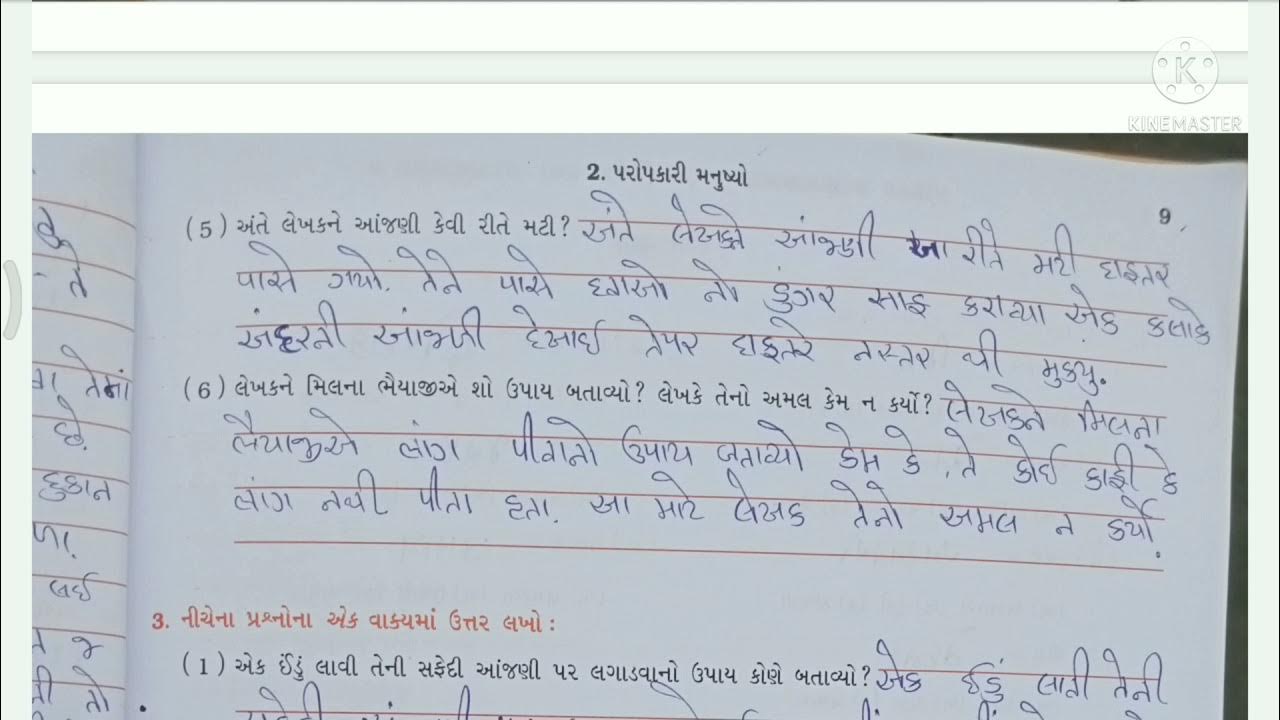 KINEMASTER
2. પરોપકારી મનુષ્યો
9
(5) અંતે લેખકને આંજણી કેવી રીતે મટી? અંતે લેખકને આંજણી આ રીતે મટી ડાકતર
પાસે ગયો. તેને પાસે દવાઓ નો ડુંગર સાફ કરાવ્યા એક કલાકે
અંદરની આંજણી દેખાઈ તેપર ડાકતરે નસ્તર થી મુકયુ.
(6) લેખકને મિલના ભૈયાજીએ શો ઉપાય બતાવ્યો? લેખકે તેનો અમલ કેમ ન કર્યો? લેખકને મિલના
ભૈયાજીએ ભાંગ પીવાનો ઉપાય બતાવ્યો કેમ કે તે કોઈ કાફી કે
ભાંગ નથી પીતા હતા. આ માટે લેખક તેનો અમલ ન કર્યો.
3. નીચેના પ્રશ્નોના એક વાક્યમાં ઉત્તર લખો:
(1) એક ઈંડું લાવી તેની સફેદી આંજણી પર લગાડવાનો ઉપાય કોણે બતાવ્યો? એક ઈંડું લાવી તેની
તે
તેમાં
છે.
દુકાન
લઈ
જ
તો